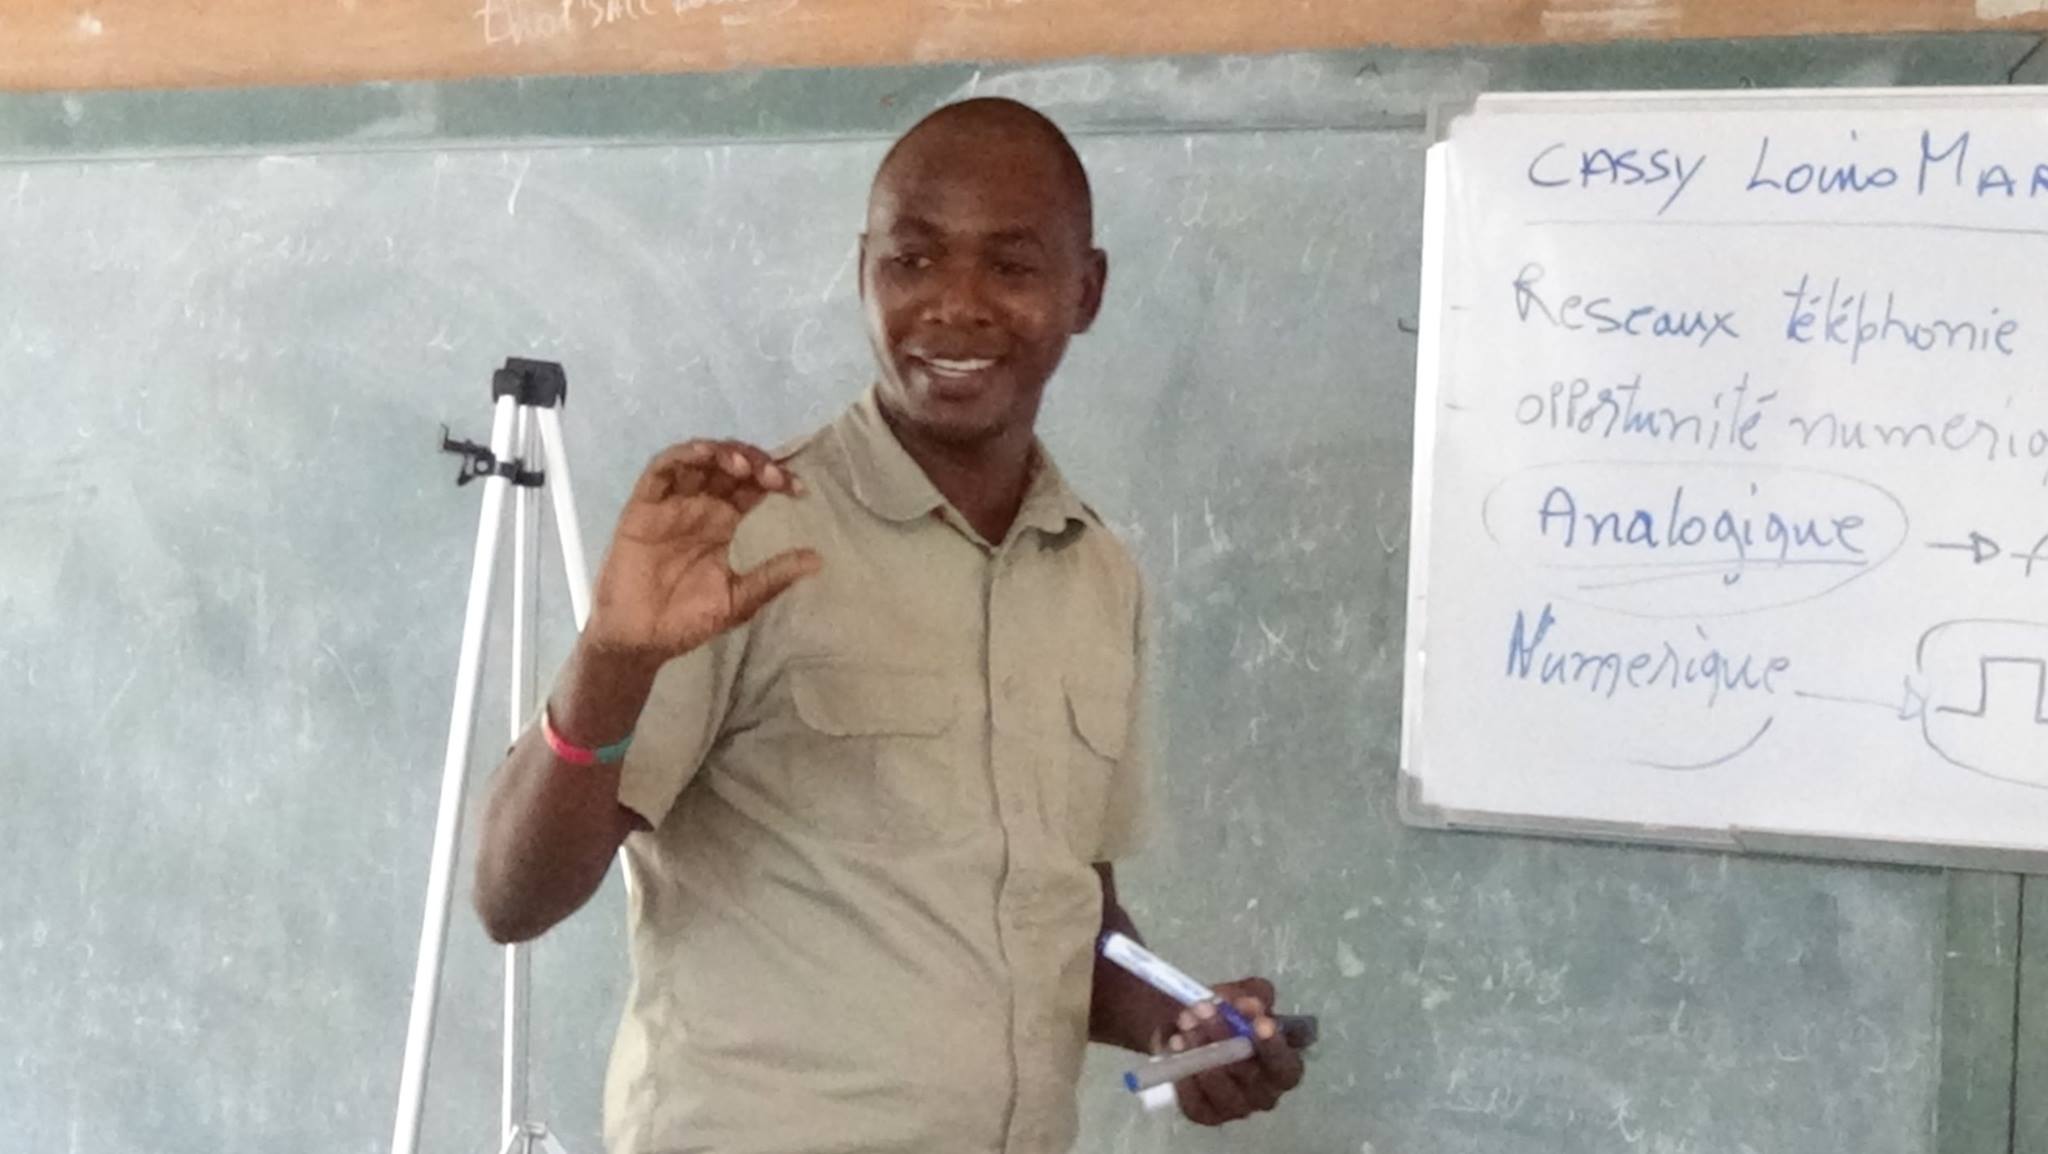 CASSY Louis MAR
- Reseaux téléphonie
- opportunité numeriq
Analogique →
Numerique →